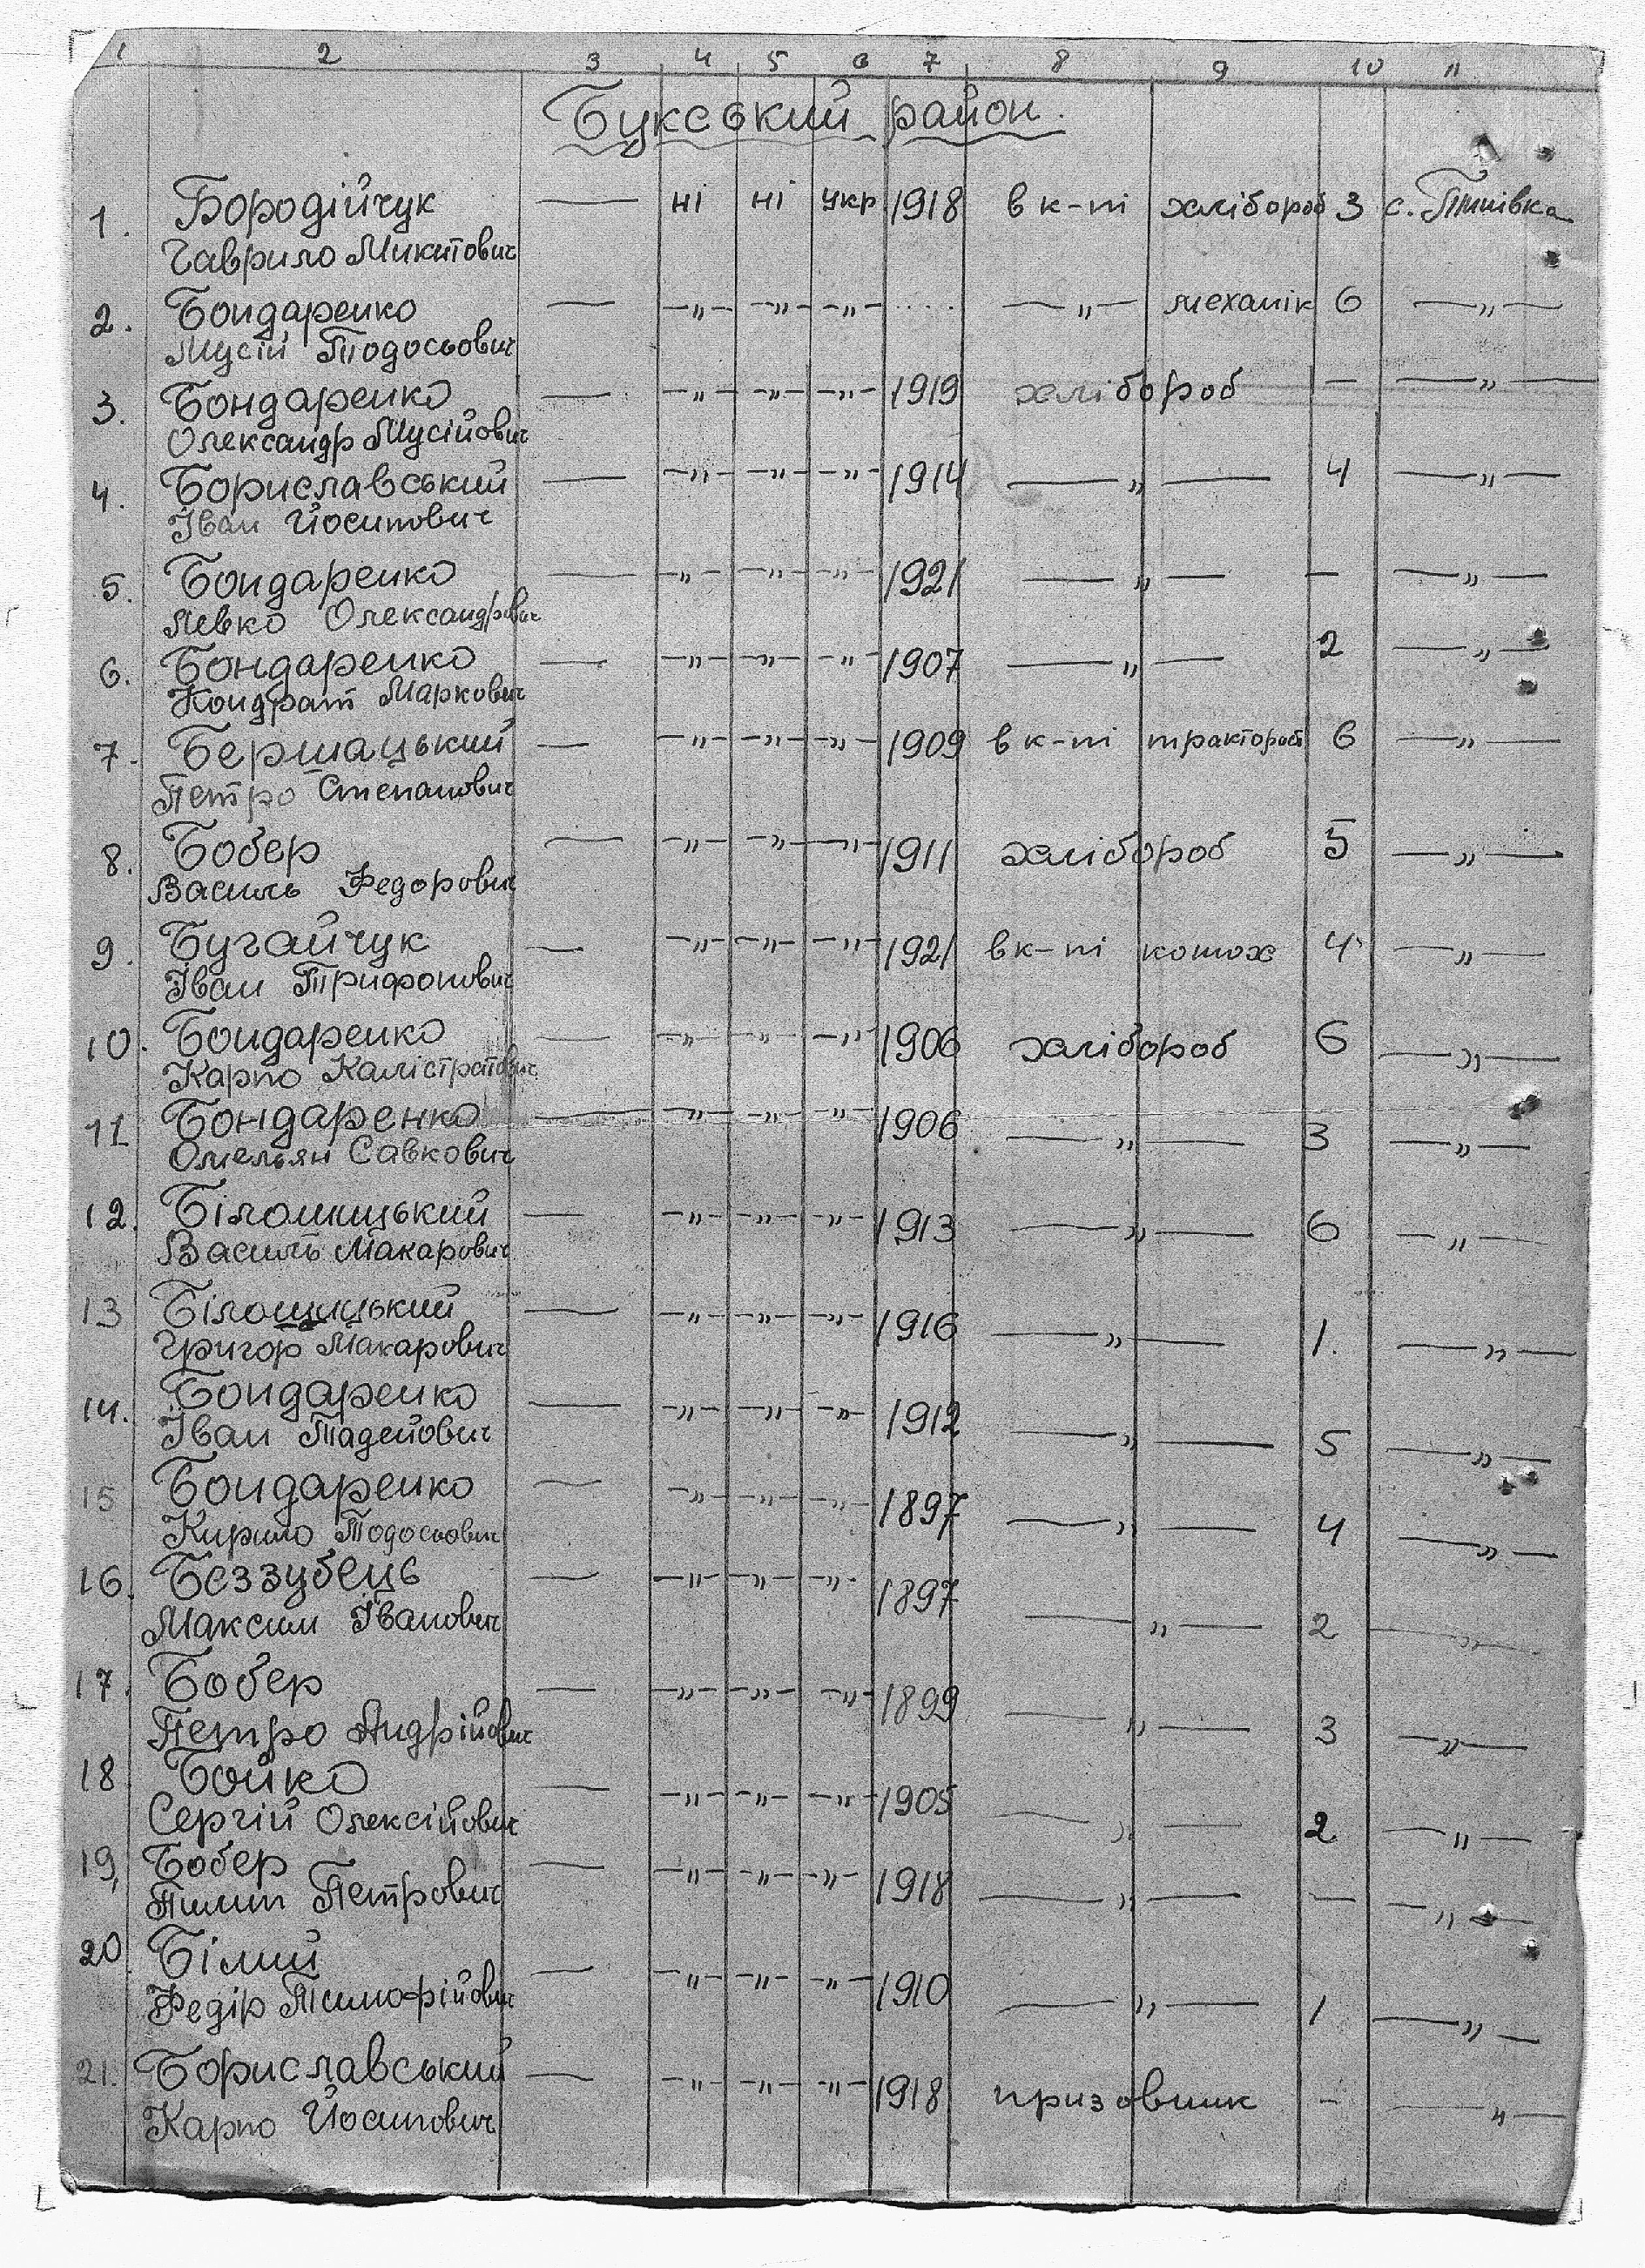 1 2 3 4 5 6 7 8 9 10 11
Букський район.
1. Бородійчук — ні ні укр 1918 в к-пі хлібороб 3 с. Пипівка
Гаврило Микитович
2. Бондаренко — —„— —„— —„— .... —„— механік 6 —„—
Мусій Тодосьович
3. Бондаренко — —„— —„— —„— 1919 хлібороб — —„—
Олександр Мусійович
4. Бориславський — —„— —„— —„— 1914 —„— 4 —„—
Іван Йосипович
5. Бондаренко — —„— —„— —„— 1921 —„— — —„—
Левко Олександрович
6. Бондаренко — —„— —„— —„— 1907 —„— 2 —„—
Кондрат Маркович
7. Бершацький — —„— —„— —„— 1909 в к-пі тракторист 6 —„—
Петро Степанович
8. Бобер — —„— —„— —„— 1911 хлібороб 5 —„—
Василь Федорович
9. Бугайчук — —„— —„— —„— 1921 в к-пі конюх 4 —„—
Іван Трифонович
10. Бондаренко — —„— —„— —„— 1906 хлібороб 6 —„—
Карпо Калістратович
11 Бондаренко — —„— —„— —„— 1906 —„— 3 —„—
Омельян Савкович
12. Білошицький — —„— —„— —„— 1913 —„— 6 —„—
Василь Макарович
13 Білощицький — —„— —„— —„— 1916 —„— 1. —„—
Григор Макарович
14. Бондаренко — —„— —„— —„— 1912 —„— 5 —„—
Іван Тадейович
15 Бондаренко — —„— —„— —„— 1897 —„— 4 —„—
Кирило Тодосьович
16. Беззубець — —„— —„— —„— 1897 —„— 2 —„—
Максим Іванович
17. Бобер — —„— —„— —„— 1899 —„— 3 —„—
Петро Андрійович
18 Бойко — —„— —„— —„— 1905 —„— 2 —„—
Сергій Олексійович
19, Бобер — —„— —„— —„— 1918 —„— — —„—
Пилип Петрович
20 Білий — —„— —„— —„— 1910 —„— 1 —„—
Федір Тимофійович
21. Бориславський — —„— —„— —„— 1918 призовник - —„—
Карпо Йосипович